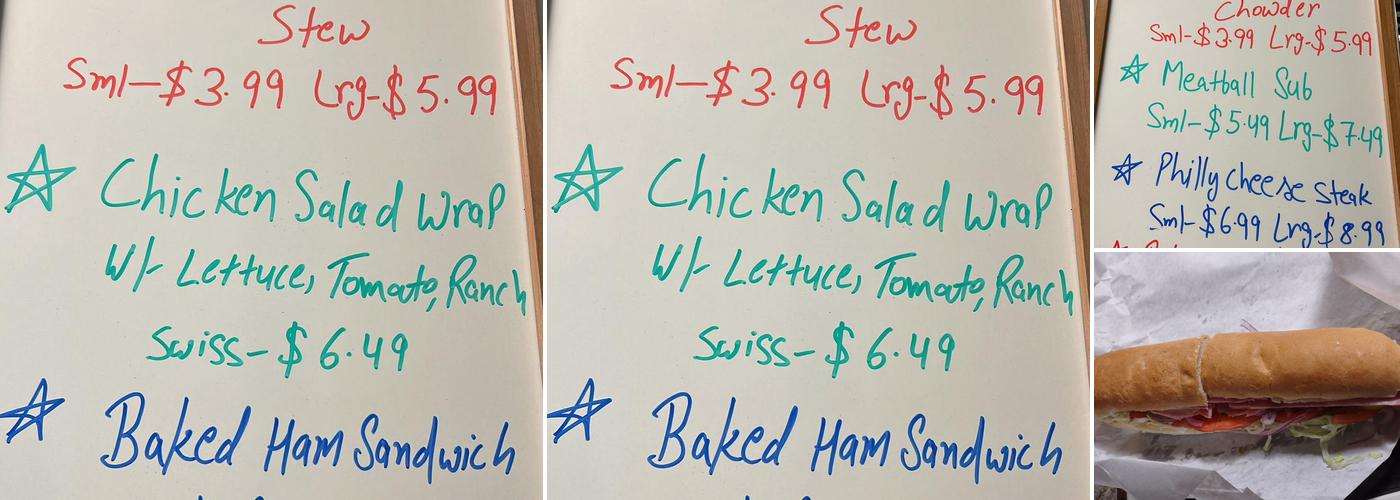 Stew
Sml-$3.99 Lrg-$5.99
Chicken Salad Wrap
W/- Lettuce, Tomato, Ranch
Swiss-$6.49
Baked Ham Sandwich
Stew
Sml-$3.99 Lrg-$5.99
Chicken Salad Wrap
W/- Lettuce, Tomato, Ranch
Swiss-$6.49
Baked Ham Sandwich
Chowder
Sml-$3.99 Lrg-$5.99
Meatball Sub
Sml-$5.49 Lrg-$7.49
Philly cheese steak
Sml-$6.99 Lrg-$8.99